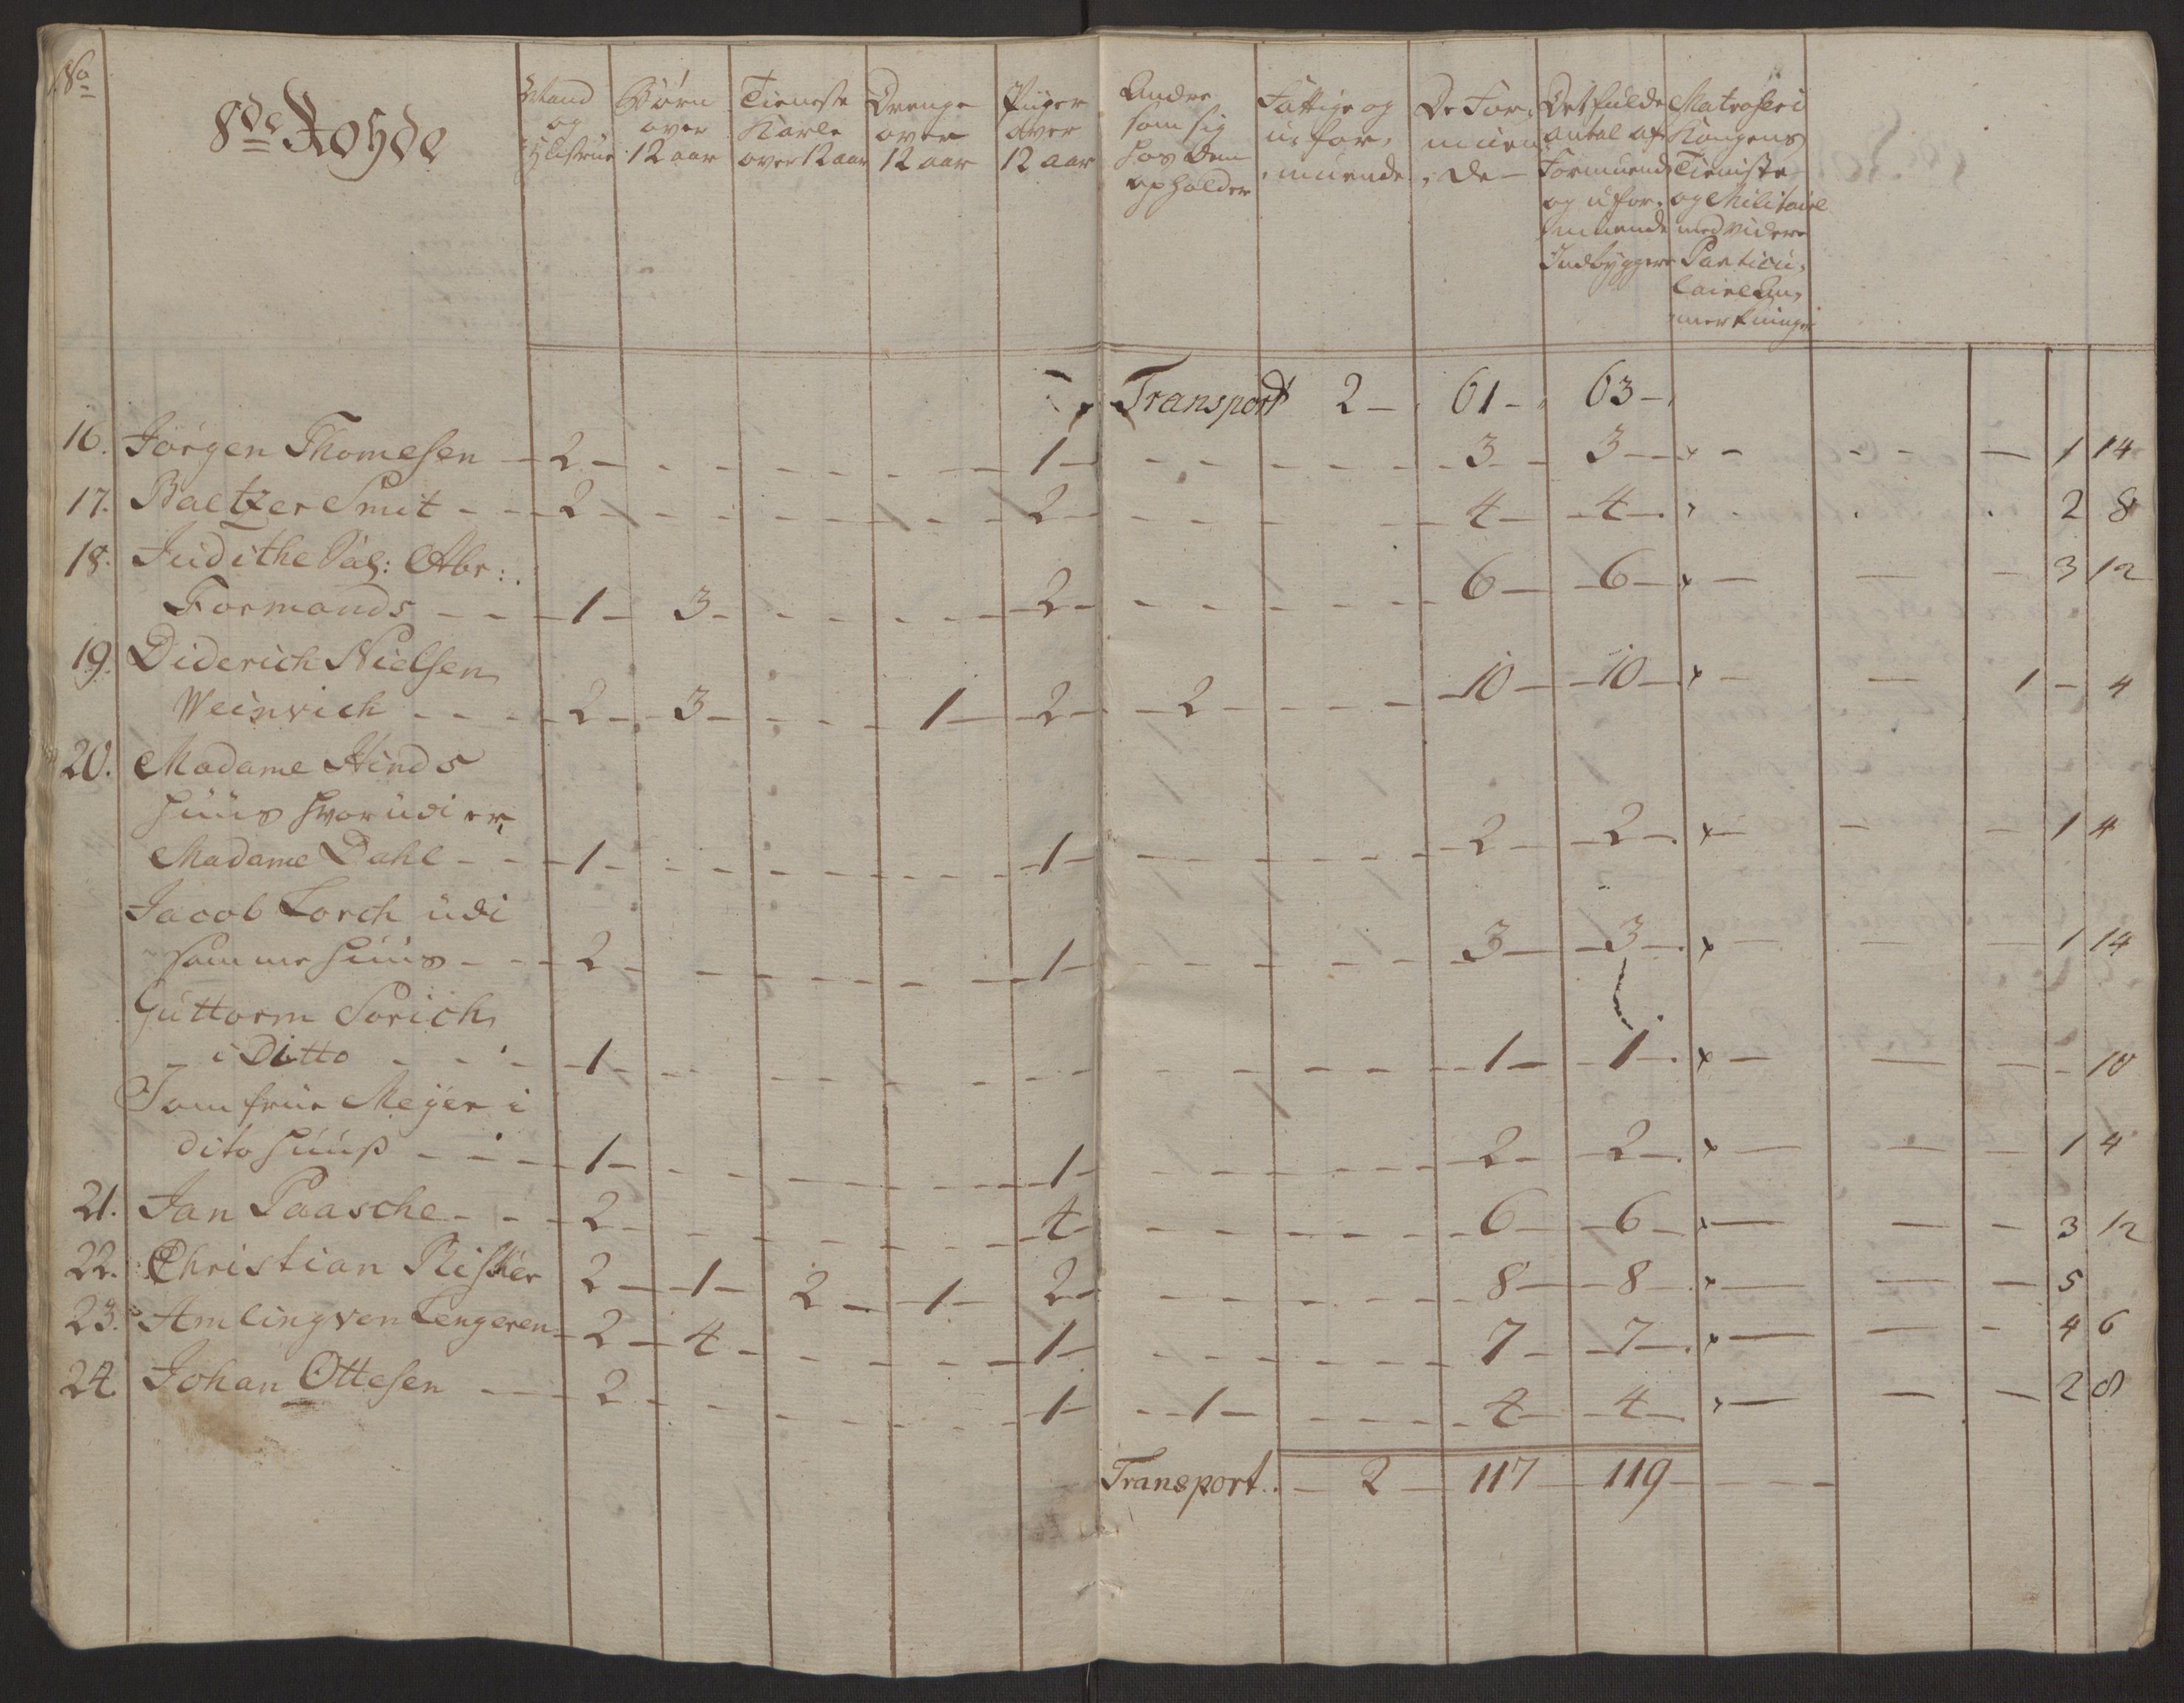 No
8de Rohde
Mand og Hustrue
Børn over 12 aar
Tieneste Karle over 12 aar
Drenge over 12 aar
Piiger over 12 aar
Andre som sig hos dem opholder
Fattige og u-for-muende
De For-muen-de
Det fulde antal af Formuende og ufor-muende Indbyggere
Matroser i Kongens Tieniste og Militaire med videre Particu-laire An-merkninger
Transport 2 — 61 — 63 —
16. Jørgen Thomesen — 2 — 1 — 3 — 3 — x — 1 14
17. Baltzer Smit — 2 — 2 — 4 — 4 — x 2 8
18. Judithe Sal: Abr:
Formands — 1 — 3 — 2 — 6 — 6 — x — 3 12
19. Diderich Nielsen
Weinvich — 2 — 3 — 1 — 2 — 2 — 10 — 10 — x — 1 — 4
20. Madame Hinds
Huus hvorudi er
Madame Dahl — 1 — 1 — 2 — 2 — x — 1 4
Jacob Lorch udi
samme Huus — 2 — 1 — 3 — 3 — x — 1 14
Guttorm Sorich
i Ditto — 1 — 1 — 1 — x — 10
Jomfrue Meyer i
dito Huus — 1 — 1 — 2 — 2 — x — 1 4
21. Jan Paasche — 2 — 4 — 6 — 6 — x — 3 12
22. Christian 2 — 1 — 2 — 1 — 2 — 8 — 8 — x — 5
23. Amling von Lengeren — 2 — 4 — 1 — 7 — 7 — x — 4 6
24 Johan Ottesen — 2 — 1 — 1 — 4 — 4 — x — 2 8
Transport — 2 — 117 — 119 —